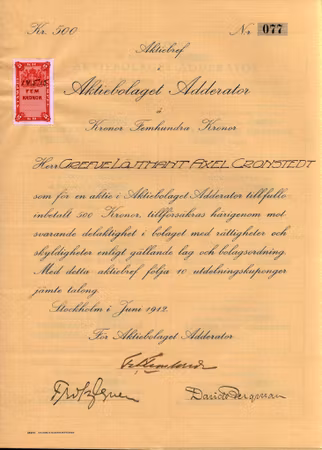 Kr. 500
No 077
Aktiebref
i
Aktiebolaget Adderator
å
Kronor Femhundra, Kronor
FEM
KRONOR
Herr GREFVE LÖJTNANT AXEL CRONSTEDT
som för en aktie i Aktiebolaget Adderator tillfullo
inbetalt 500 Kronor, tillförsäkras härigenom mot
svarande delaktighet i bolaget med rättigheter och
skyldigheter enligt gällande lag och bolagsordning.
Med detta aktiebref följa 10 utdelningskuponger
jämte talong.
Stockholm i Juni 1912.
För Aktiebolaget Adderator
David Bergman